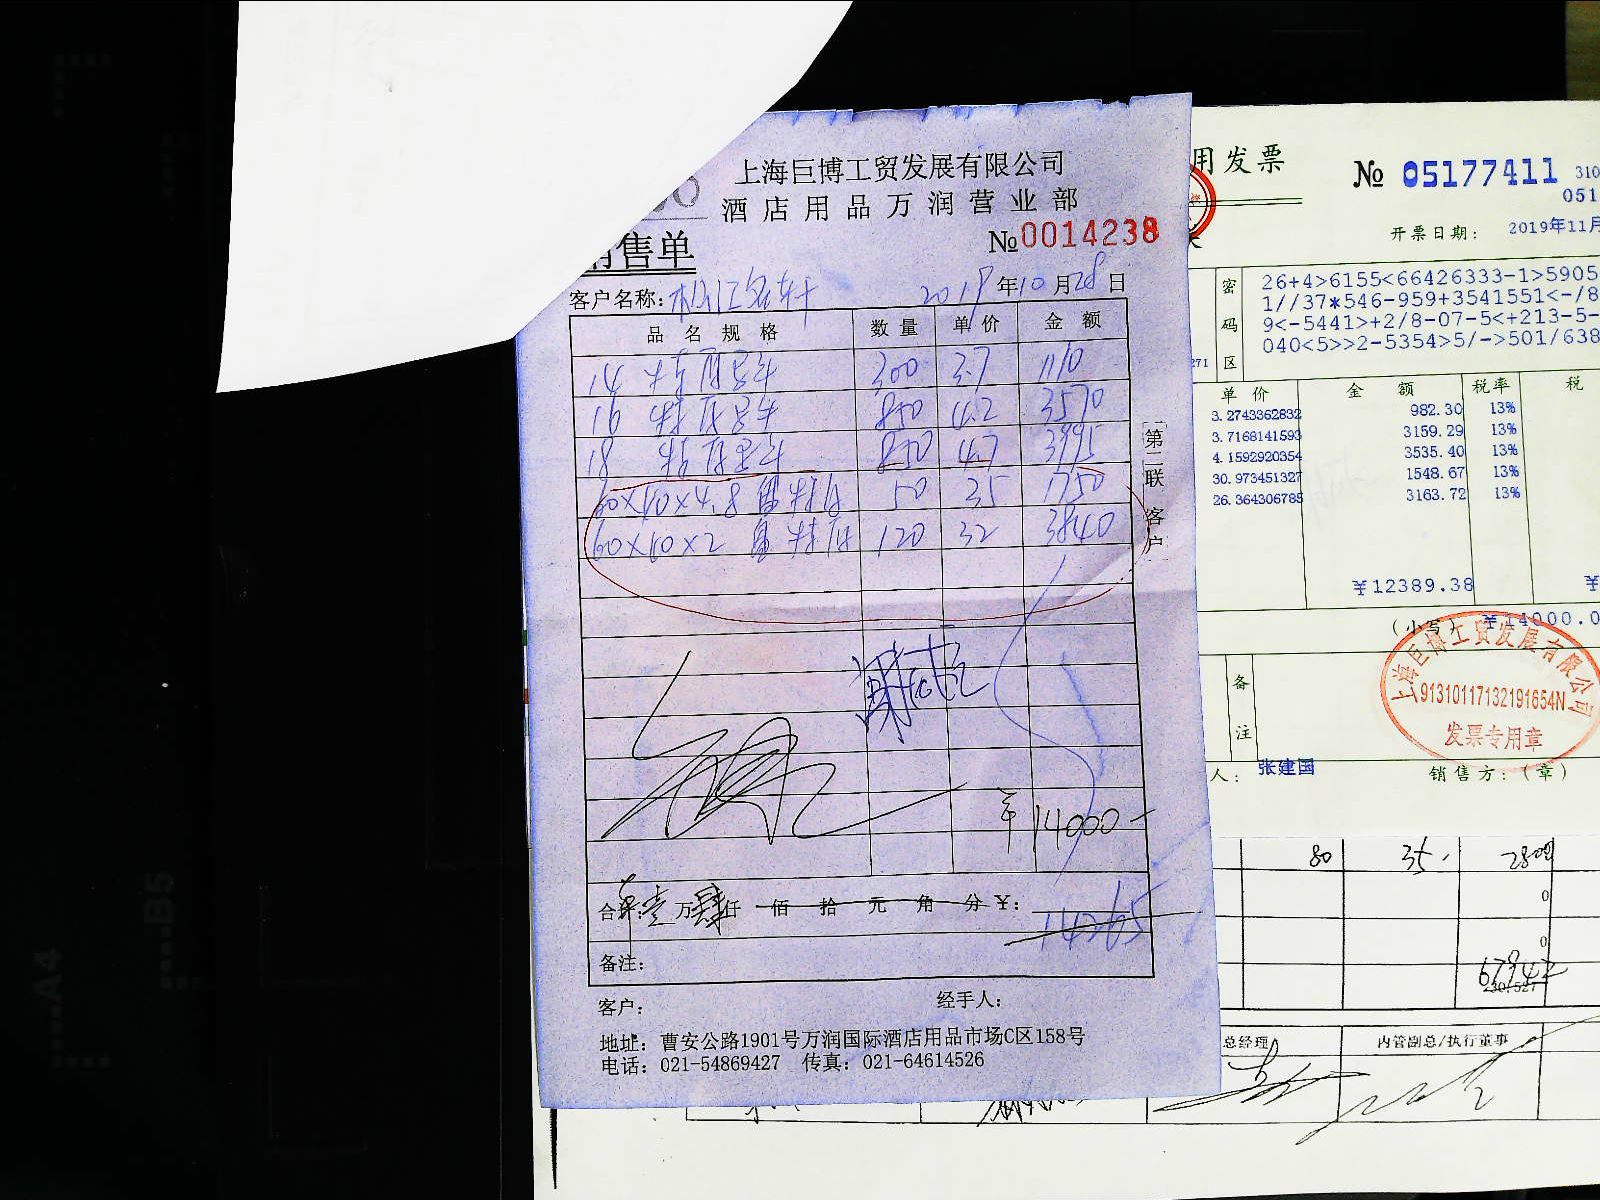 上海巨博工贸发展有限公司
酒店用品万润营业部
售单
№0014238
客户名称:
年10月28日
品名规格 数量 单价 金额
14 300 3.7 1110
16 850 4.2 3570
18 850 4.7 3995
60×40×4.8 50 35 1750
60×40×2 120 32 3840
¥14000-
合 壹万肆仟佰拾元角分¥:
14265
备注:
客户:
经手人:
地址: 曹安公路1901号万润国际酒店用品市场C区158号
电话: 021-54869427 传真: 021-64614526
第二联 客户
用发票
№ 05177411
310
051
开票日期: 2019年11月
密码区
26+4>6155<66426333-1>5905
1//37*546-959+3541551<-/8
9<-5441>+2/8-07-5<+213-5-
040<5>>2-5354>5/->501/638
271
单价 金额 税率 税
3.2743362832 982.30 13%
3.7168141593 3159.29 13%
4.1592920354 3535.40 13%
30.973451327 1548.67 13%
26.364306785 3163.72 13%
¥12389.38 ¥
(小写) ¥14000.0
备注
上海巨博工贸发展有限公司
91310117132191654N
发票专用章
人: 张建国
销售方:(章)
80 35. 2800
0
0
总经理 内管副总/执行董事